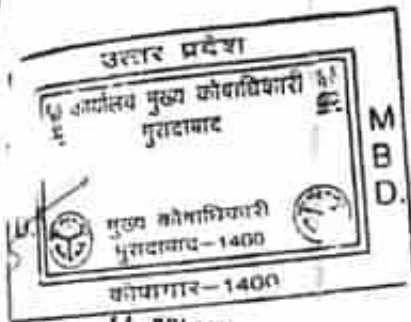 उत्तर प्रदेश
कार्यालय मुख्य कोषाधिकारी
मुरादाबाद
MBD.
मुख्य कोषाधिकारी
मुरादाबाद-1400
कोषागार-1400